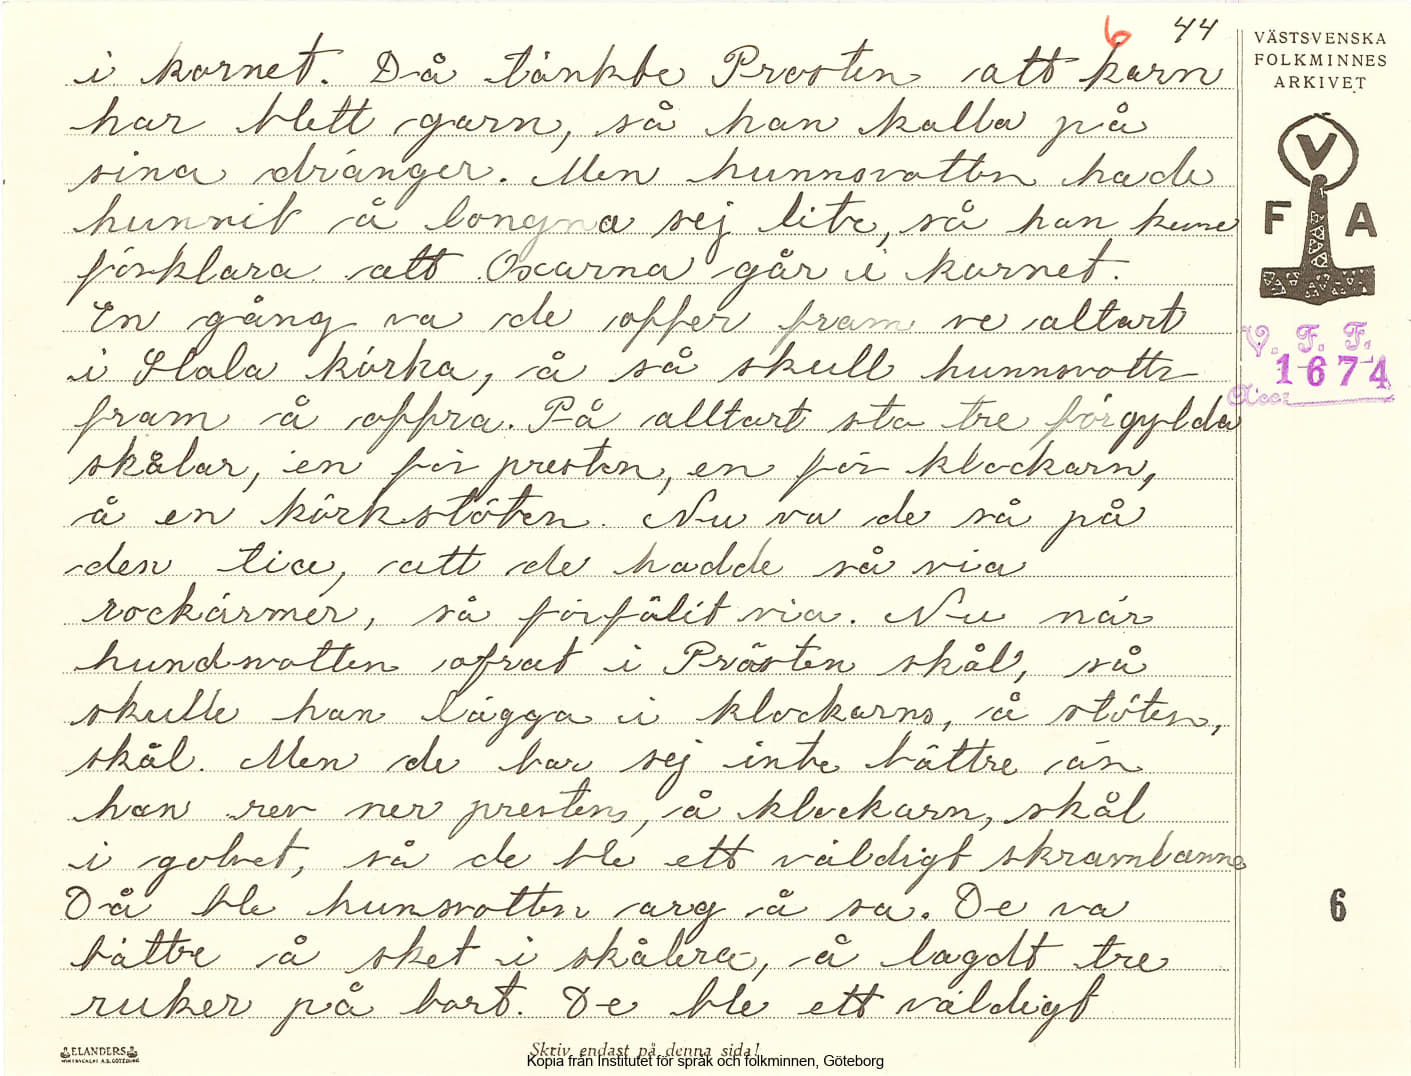 6 44
VÄSTSVENSKA
FOLKMINNES
ARKIVET
V
F A
V. F. F.
1674
Acc:
i kornet. Då tänkte Prosten att karn
har blett garn, så han kalla på
sina dränger. Men hunnsvotten hade
hunnit å longna sej lite, så han kune
förklara att Oxarna går i kornet.
En gång va de offer fram ve altart
i Slala körka, å så skull hunnsvotte
fram å offra. På alltart sto tre förgylda
skålar, en för presten, en för klockarn,
å en körkstöten. Nu va de så på
den tia, att de hadde så via
rockärmer, så förfälit via. Nu när
hundsvotten ofrat i Prästen skål, så
skulle han lägga i klockarns, å stöten,
skål. Men de bar sej inte bättre än
han rev ner prestens, å klockarn, skål
i golvet, så de ble ett väldigt skrambanne
Då ble hunsvotten arg å sa. De va
bättre å sket i skålera, å lagdt tre
ruker på bort. De ble ett väldigt
6
ELANDERS
Skriv endast på denna sida!
Kopia från Institutet för språk och folkminnen, Göteborg